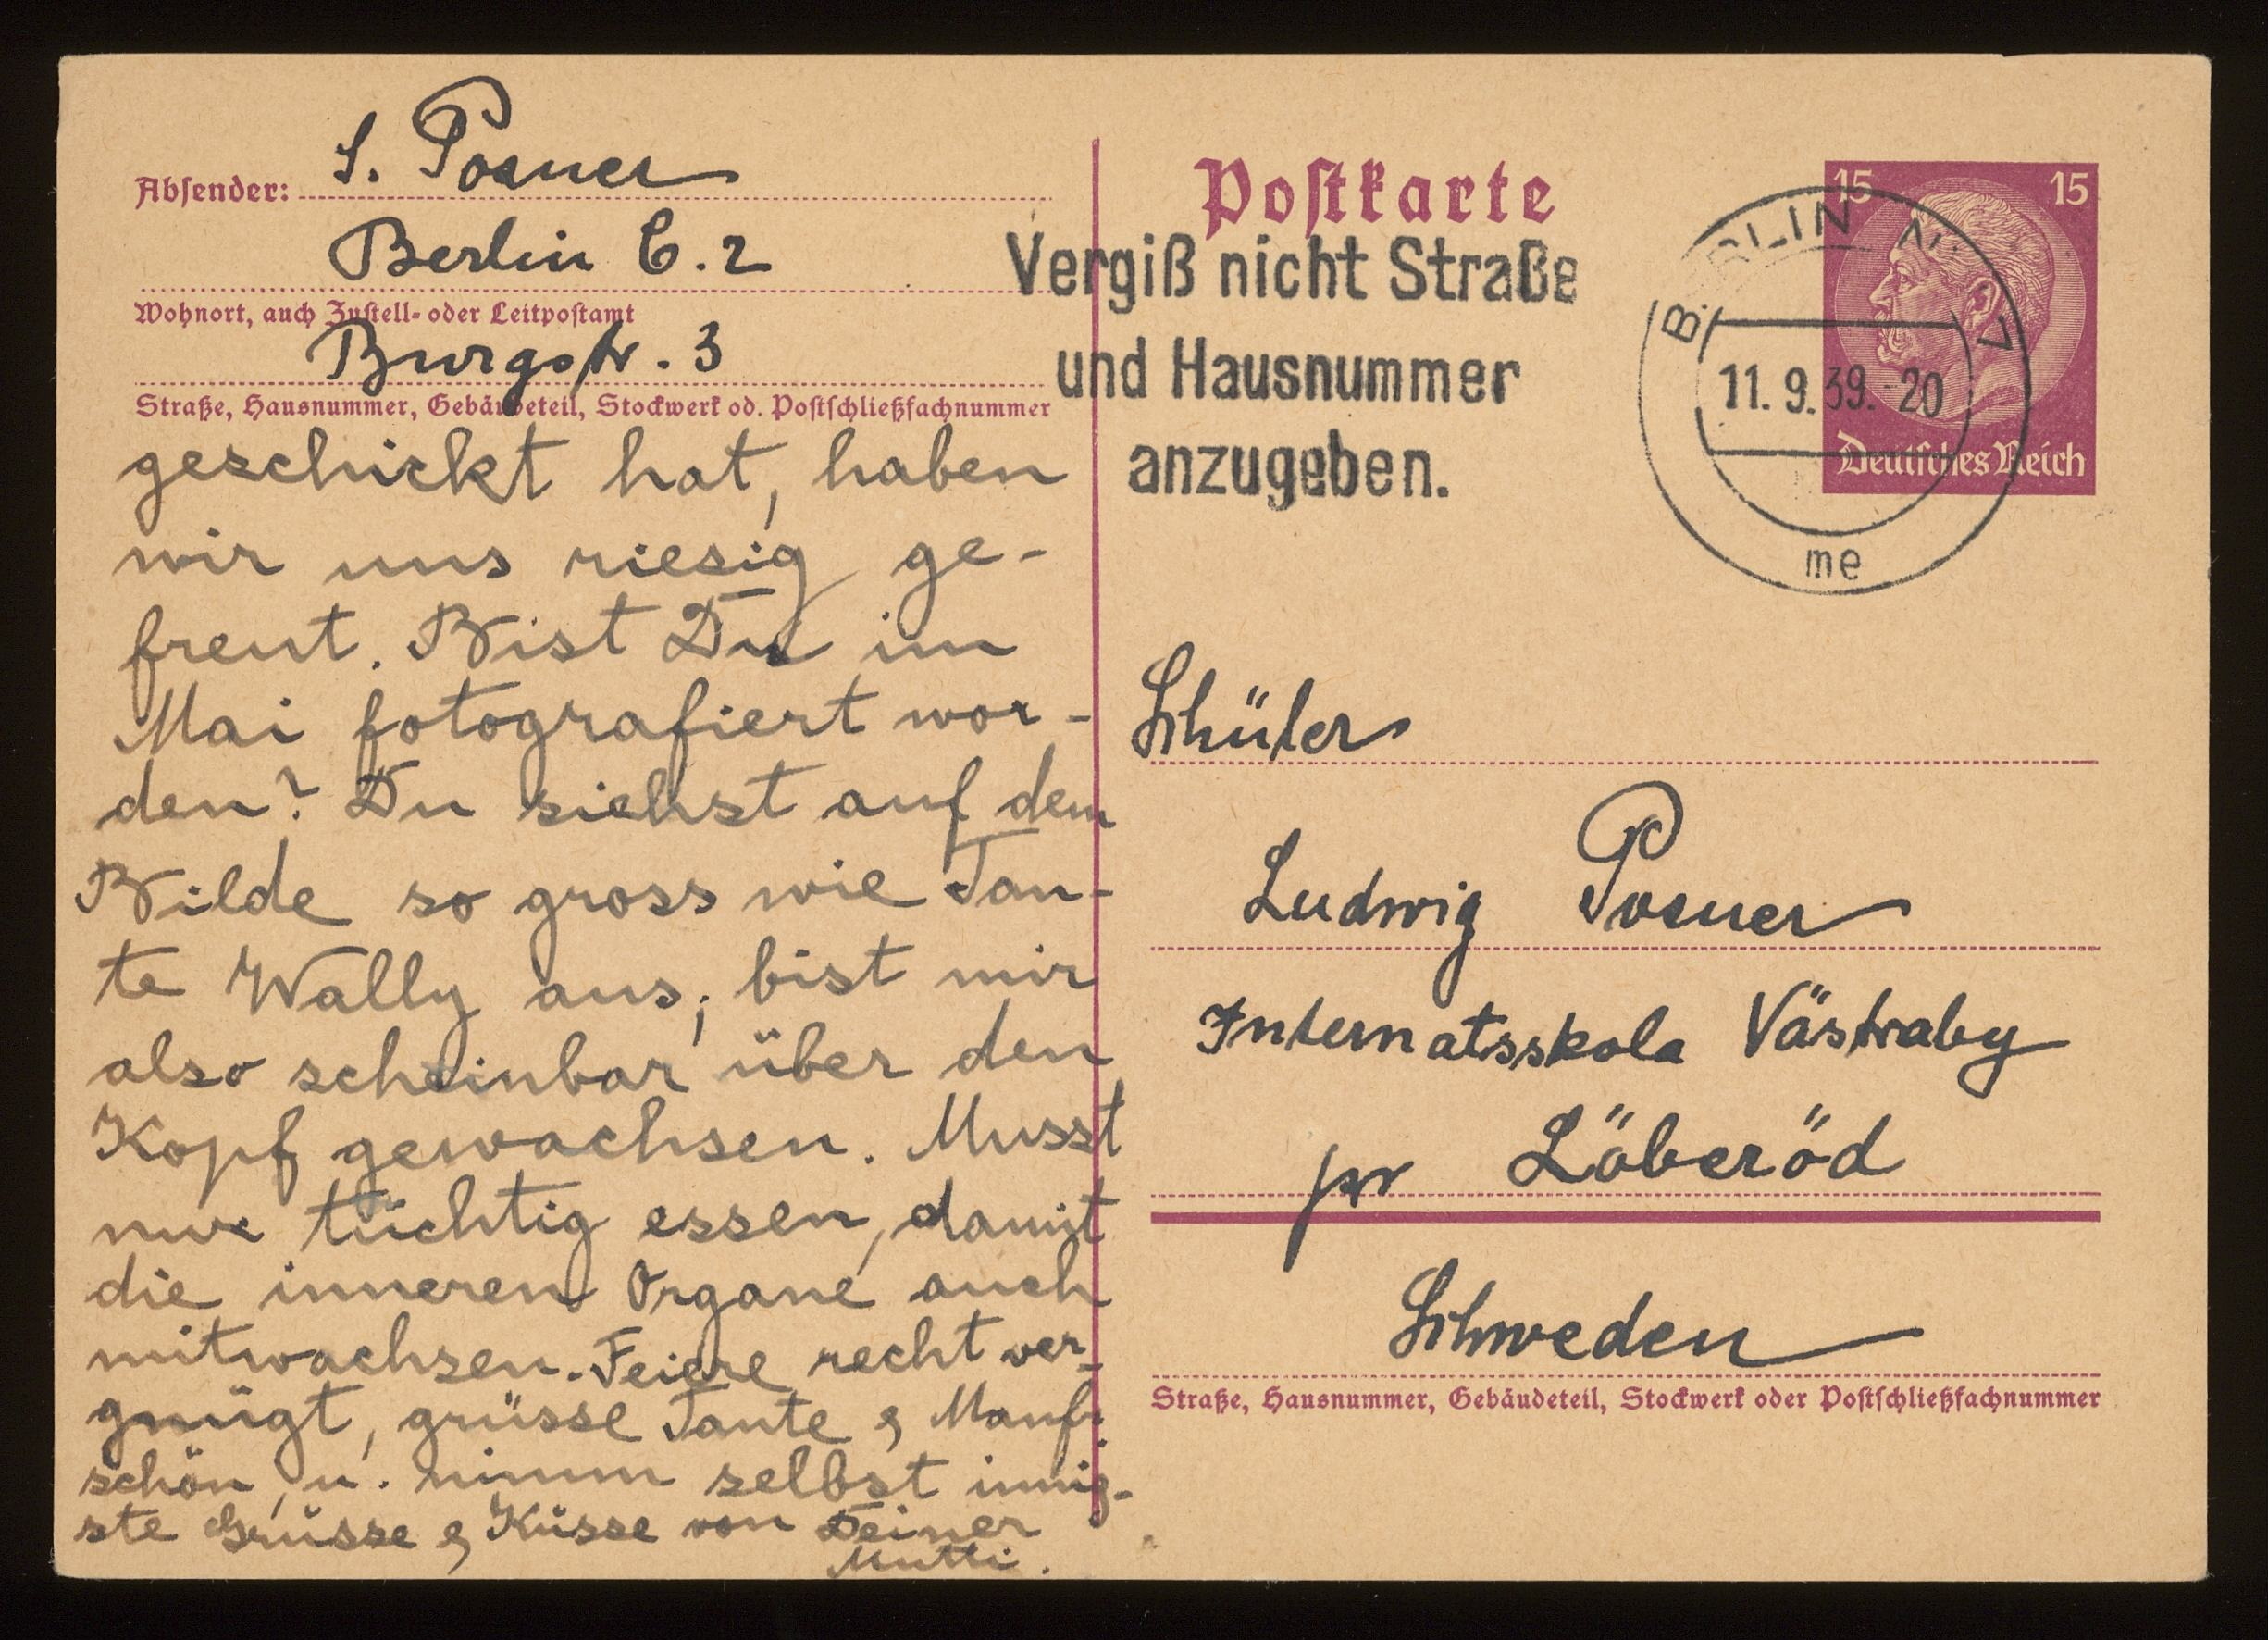 Absender: S. Posner
Berlin C. 2
Wohnort, auch Zustell- oder Leitpostamt
Burgstr. 3
Straße, Hausnummer, Gebäudeteil, Stockwerk od. Postschließfachnummer
geschickt hat, haben
wir uns riesig ge-
freut. Bist Du im
Mai fotografiert wor-
den? Du siehst auf dem
Bilde so gross wie Tan-
te Wally aus, bist mir
also scheinbar über den
Kopf gewachsen. Musst
nur tüchtig essen, damit
die inneren Organe auch
mitwachsen. Feiere recht ver-
gnügt, grüsse Tante & Manfr.
schön, u. nimm selbst innig-
ste Grüsse & Küsse von Deiner
Mutti.
Postkarte
Vergiß nicht Straße
und Hausnummer
anzugeben.
15 15
Deutsches Reich
BERLIN
11.9.39.-20
me
Schüler
Ludwig Posner
Internatsskola Västraby
pr Löberöd
Schweden
Straße, Hausnummer, Gebäudeteil, Stockwerk oder Postschließfachnummer